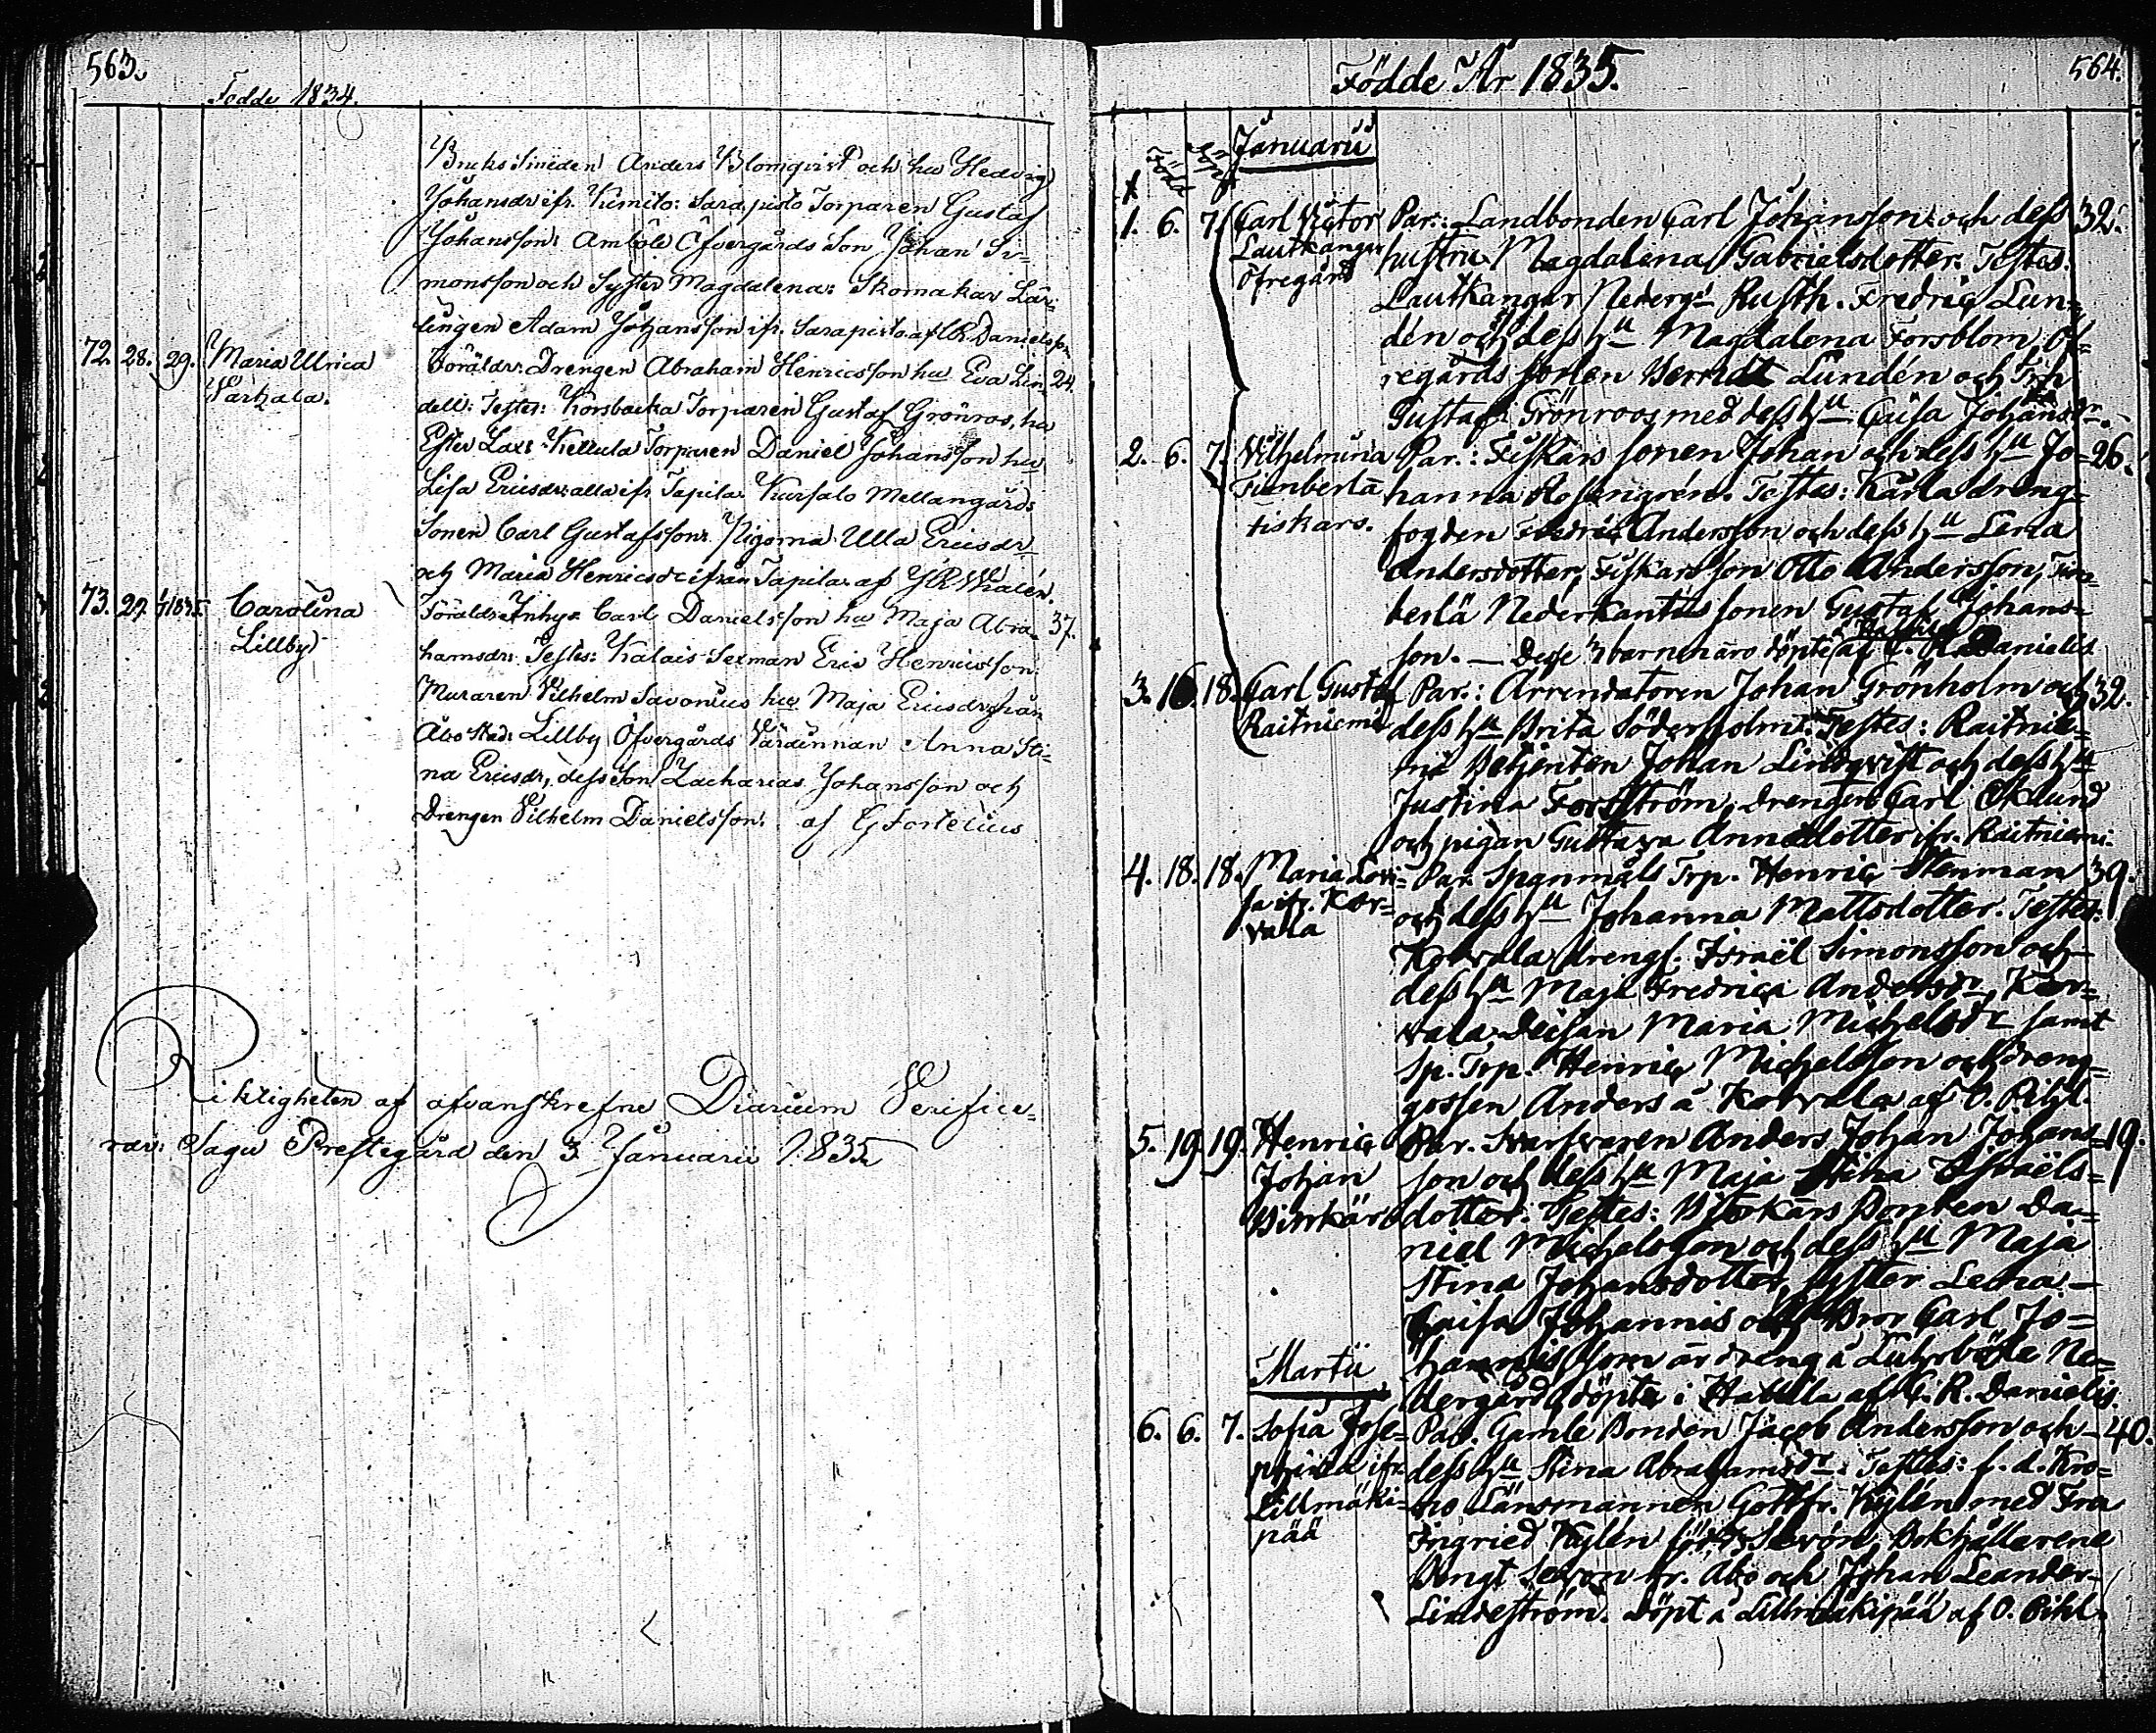 563.
Födde 1834.
Bruks Smeden Anders Blomqvist och hu Hedvig
Johansdr ifr. Kimito: Sarapisto Torparen Gustaf
Johansson: Amböle Öfvergårds Son Johan Si=
monsson och Syster Magdalena: Skomakar Lär=
lingen Adam Johansson ifr. Sarapisto af CR Danielsson
72. 28. 29. Maria Ulrica Föräldr: Drengen Abraham Henricsson hu Eva Lin= 24.
Vartzala. dell: Testes: Korsbacka Torparen Gustaf Grönros, hu
Ester Lax: Kellula Torparen Daniel Johansson hu
Lisa Ericsdr: alla ifr Tapila. Kursalo Mellangårds
Sonen Carl Gustafsson: Pigorna Ulla Ericsdr
och Maria Henricsdr ifrån Tapila af
73. 29. 1/1 1835. Carolina Föräldr: Inhys Carl Danielsson hu Maja Abra= 37.
Lillby hamsdr: Testes: Kalais Sexman Eric Henricsson
Muraren Vilhelm Savonius hu Maja Ericsdr från
Åbo Stad: Lillby Öfvergårds Värdinnan Anna Sti=
na Ericsdr, dess Son Zacharias Johansson och
Drengen Vilhelm Danielsson. af G Fortelius
Riktigheten af ofvanskrefne Diarium Verifice=
rar: Sagu Prestegård den 3 Januarii 1835
564.
Födde År 1835.
Januarii
Född
1. 6. 7. Carl Victor Par: Landbonden Carl Johansson och dess 32.
Lautkangar hustru Magdalena Gabrielsdotter. Testes:
Öfregård Lautkangar Nedergd Rusth. Fredric Lun=
dén och dess hu Magdalena Forsblom, Öf=
regårds sonen Berndt Lundén och
Gustaf Grönroos med dess hu Caisa Johansdr.
2. 6. 7. Vilhelmina Par.: Fiskars sonen Johan och dess hu Jo= 26.
Timberla hanna Rosengrén. Testes: Karla dreng=
fiskars. fogden Fredric Andersson och dess hu Lena
Andersdotter, Fiskars son Otto Andersson, Tim=
berlä Nederkantus sonen Gustaf Johans=
son. — Desse 3 barnen äro döpte af C. R. Danielis
3. 16. 18. Carl Gustaf Par.: Arrendatoren Johan Grönholm och 32.
Raitniemi dess hu Brita Söderholm. Testes: Raitnie=
mi Betjenten Johan Lindqvist och dess hu
Justina Forsström, drengen Carl Eklund
och pigan Gustava Annasdotter ifr. Raitniemi.
4. 18. 18. Maria Lovi= Par. Spanmåls Trp. Henric Stenman 39.
sa ifr. Kor= och dess hu Johanna Mattsdotter. Testes:
vala Korvala drengf. Israël Simonsson och
dess hu Maja Fredrica Andersdr, Kor=
vala Maria Michelsdr samt
Sp. Trp. Henric Michelsson och dreng=
gossen Anders å Korvala af O. Pihl.
5. 19. 19. Henric Par. Svarfvaren Anders Johan Johans= 19.
Johan son och dess hu Maja Stina Israëls=
Birkärs dotter. Testes: Bonden Da=
niel Michelsson och dess hu Maja
Stina Johansdotter, syster Lena
Caisa Johannis och Bror Carl Jo=
hannis, som är dreng å Ne=
dergård, döpte i Hattula af C. R. Danielis.
Martii
6. 6. 7. Sofia Jose= Par. Gamle Bonden Jacob Andersson och 40.
phina ifr. dess hu Stina Abrahamsdr. Testes: f. d. Kro=
Lillmäki= no Länsmannen Gottfr. Kylén med Fru
pää Ingried Kylén född Sevón, Bokhållarene
Bengt Sevon fr. Åbo och Johan Leander
Lindeström. Döpt å Lillmäkipää af O. Pihl.